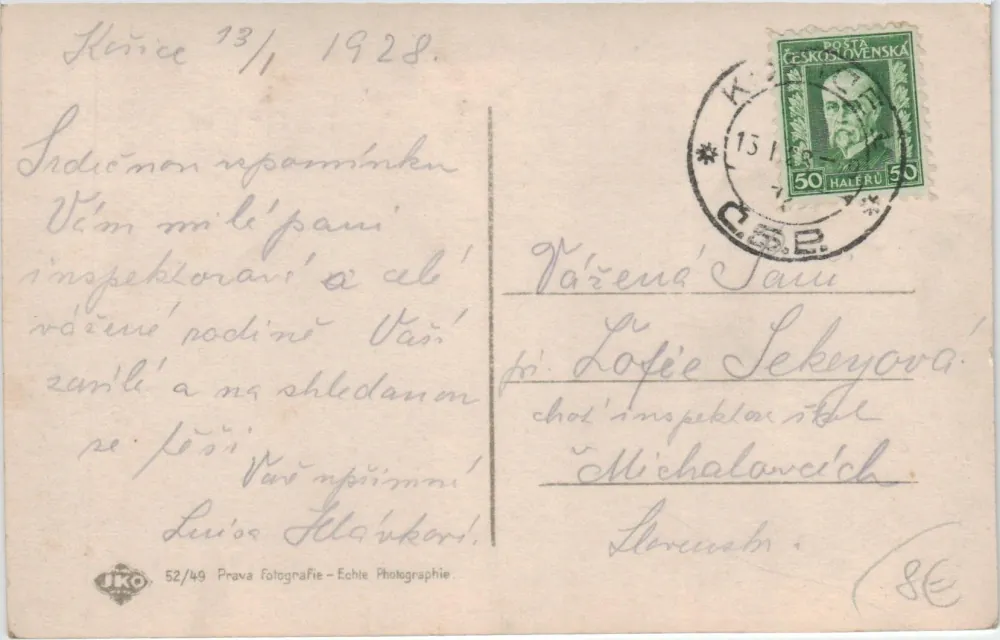 Košice 13/I 1928.
Srdečnou vzpomínku
Vám milé paní
inspektoraví a celé
vážené rodině Vaší
zasílá a na shledanou
se těší
Vaše upřímná
Luisa Hlávková.
JKO
52/49 Prava Fotografie – Echte Photographie.
POŠTA
ČESKOSLOVENSKÁ
50 HALÉŘŮ 50
Č.S.P.
Vážená Paní
pí. Žofie Sekeyová
choť inspektora škol
Michalovcích
Slovensko.
8€